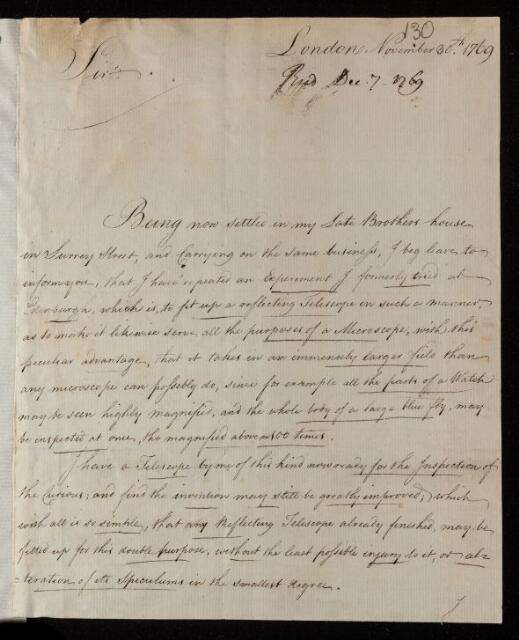 130
London November 30th. 1769
Sir
Read Dec. 7 - 1769
Being now settled in my Late Brothers house
in Surrey Street, and Carrying on the same business, I beg leave to
inform you, that I have repeated an Experiment I formerly tried at
Edinburgh, which is, to fit up a reflecting Telescope in such a manner,
as to make it likewise serve all the purposes of a Microscope, with this
peculiar advantage, that it takes in an immensely larger field than
any microscope can possibly do, since for example all the parts of a Watch
may be seen highly magnified, and the whole body of a large blue fly, may
be inspected at once, tho magnified above 100 times.
I have a Telescope by me of this kind now ready for the Inspection of
the Curious; and find the invention may still be greatly improved; which
with all is so simple, that any Reflecting Telescope already finished, may be
fitted up for this double purpose, without the least possible injury to it, or al-
=teration of its Speculums in the smallest degree.